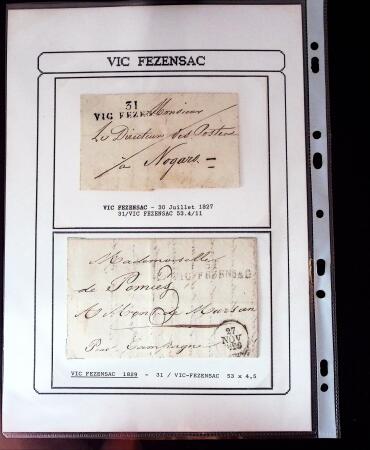 VIC FEZENSAC
31
VIC FEZEN Monsieur
Le Directeur des Postes
à Nogaro
VIC FEZENSAC - 30 Juillet 1827
31/VIC FEZENSAC 53.4/11
Mademoiselle
VIC-FEZENSAC
de Pomiès
à Mont de Marsan
Pour
27
NOV
VIC FEZENSAC 1829 - 31 / VIC-FEZENSAC 53 x 4,5